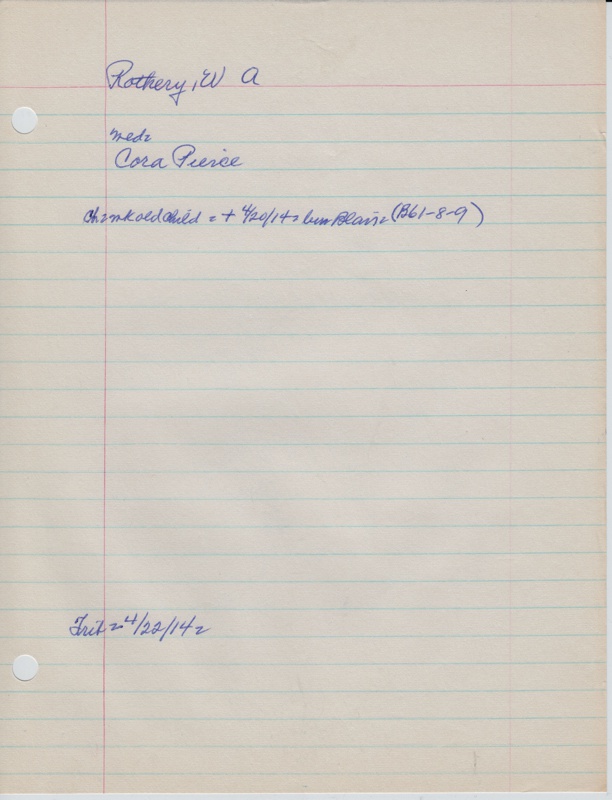 Rothery, W A
med=
Cora Pierce
Ch= mk old child = + 4/20/14 = bur Blair = (B61-8-9)
Trib = 4/22/14 =